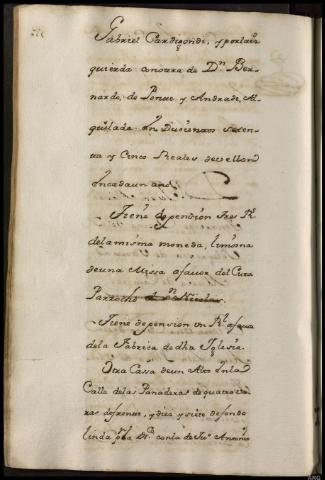 Gabriel Cardigondi, y por la iz
quierda con otra de Dn. Ber-
nardo de Ponce y Andrade, Al-
quilada en Duscientos Seten-
ta y Cinco Reales de vellon
en cada un año
Tiene de pension tres Rs.
de la misma moneda, limosna
de una Missa a favor del Cura
Parrocho de Sn. Nicolas.
Tiene de pension un Rl. a favor
de la Fabrica de dha Iglesia.
Otra Cassa de un Alto en la
Calle de las Panaderas de quatro va
ras de frente, y diez y siete de fondo
linda pr. la Dra. con la de Juo. Antonio